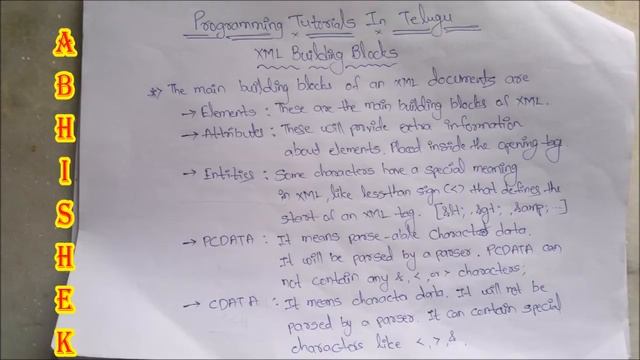 ABHISHEK
Programming Tutorials In Telugu
XML Building Blocks
*) The main building blocks of an XML documents are
→ Elements : These are the main building blocks of XML.
→ Attributes : These will provide extra information
about elements. Placed inside the opening tag
→ Entities : Some characters have a special meaning
in XML, like less than sign (<) that defines the
start of an XML tag. [&lt; , &gt; , &amp; ...]
→ PCDATA : It means parse-able character data.
It will be parsed by a parser. PCDATA can
not contain any &, <, or > characters;
→ CDATA : It means character data. It will not be
parsed by a parser. It can contain special
characters like <, >, &.